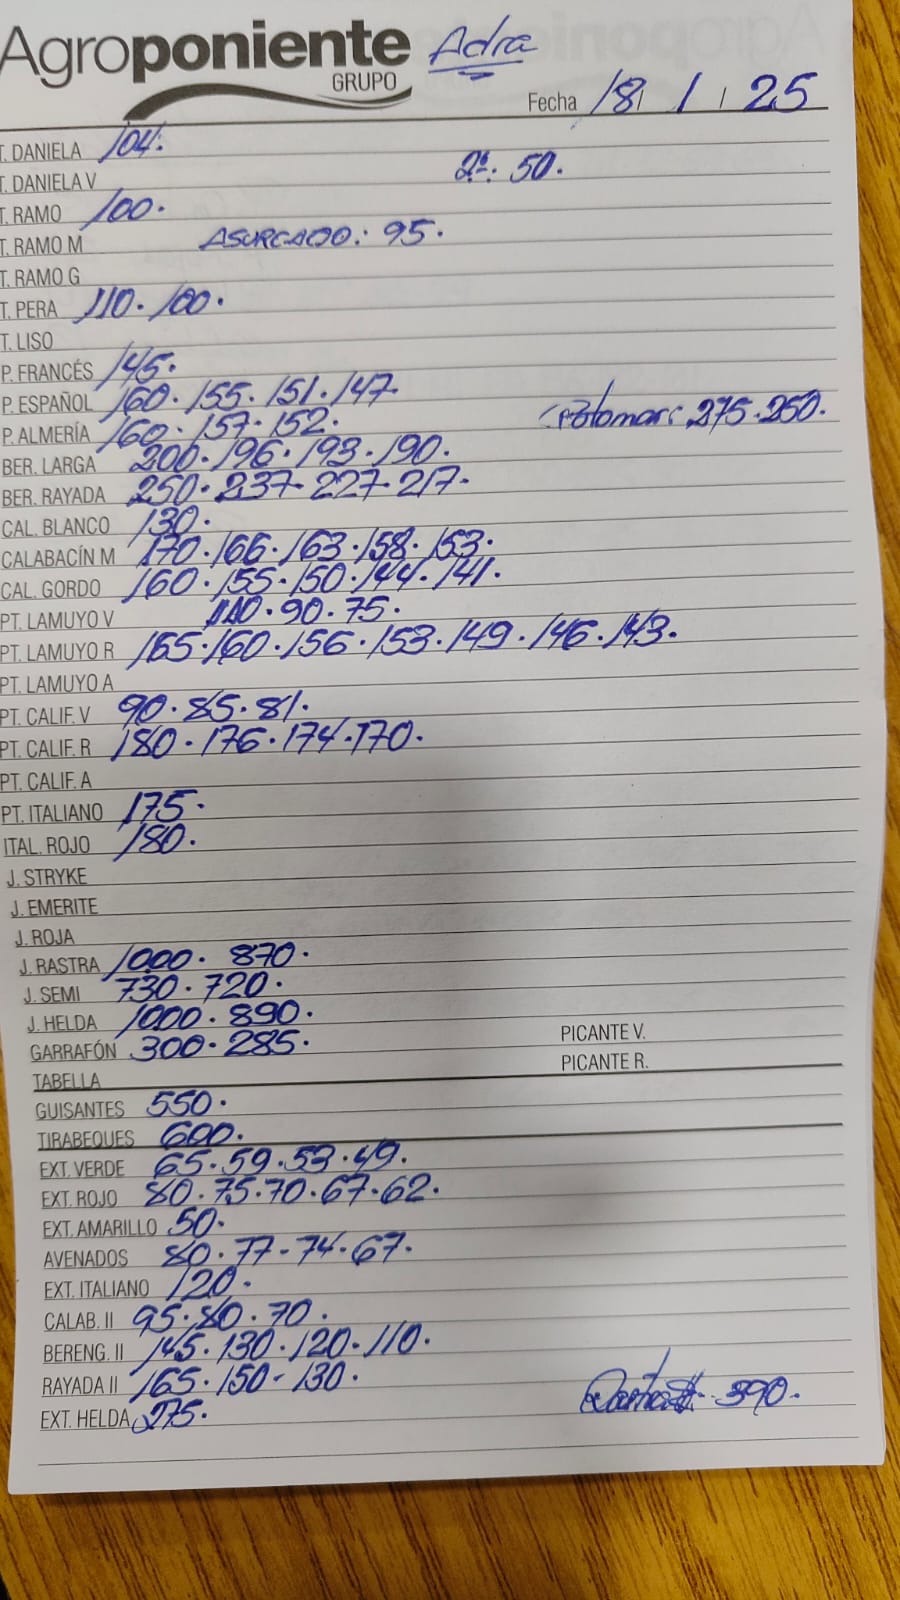 Agroponiente Adra
GRUPO
Fecha 18 / 1 / 25
T. DANELA 104.
T. DANIELA V 2ª: 50.
T. RAMO 100.
T. RAMO M ASURCADO: 95.
T. RAMO G
T. PERA 110. 100.
T. LISO
P. FRANCÉS 145.
P. ESPAÑOL 160. 155. 151. 147.
P. ALMERÍA 160. 157. 152. 275. 250.
BER. LARGA 200. 196. 193. 190.
BER. RAYADA 250. 237. 227. 217.
CAL. BLANCO 130.
CALABACÍN M 170. 166. 163. 158. 153.
CAL. GORDO 160. 155. 150. 144. 141.
PT. LAMUYO V 110. 90. 75.
PT. LAMUYO R 165. 160. 156. 153. 149. 146. 143.
PT. LAMUYO A
PT. CALIF. V 90. 85. 81.
PT. CALIF. R 180. 176. 174. 170.
PT. CALIF. A
PT. ITALIANO 175.
ITAL. ROJO 180.
J. STRYKE
J. EMERITE
J. ROJA
J. RASTRA 1000. 870.
J. SEMI 730. 720.
J. HELDA 1000. 890.
GARRAFÓN 300. 285. PICANTE V.
TABELLA PICANTE R.
GUISANTES 550.
TIRABEQUES 600.
EXT. VERDE 65. 59. 53. 49.
EXT. ROJO 80. 75. 70. 67. 62.
EXT. AMARILLO 50.
AVENADOS 80. 77. 74. 67.
EXT. ITALIANO 120.
CALAB. II 95. 80. 70.
BERENG. II 145. 130. 120. 110.
RAYADA II 165. 150. 130.
EXT. HELDA 275. 390.